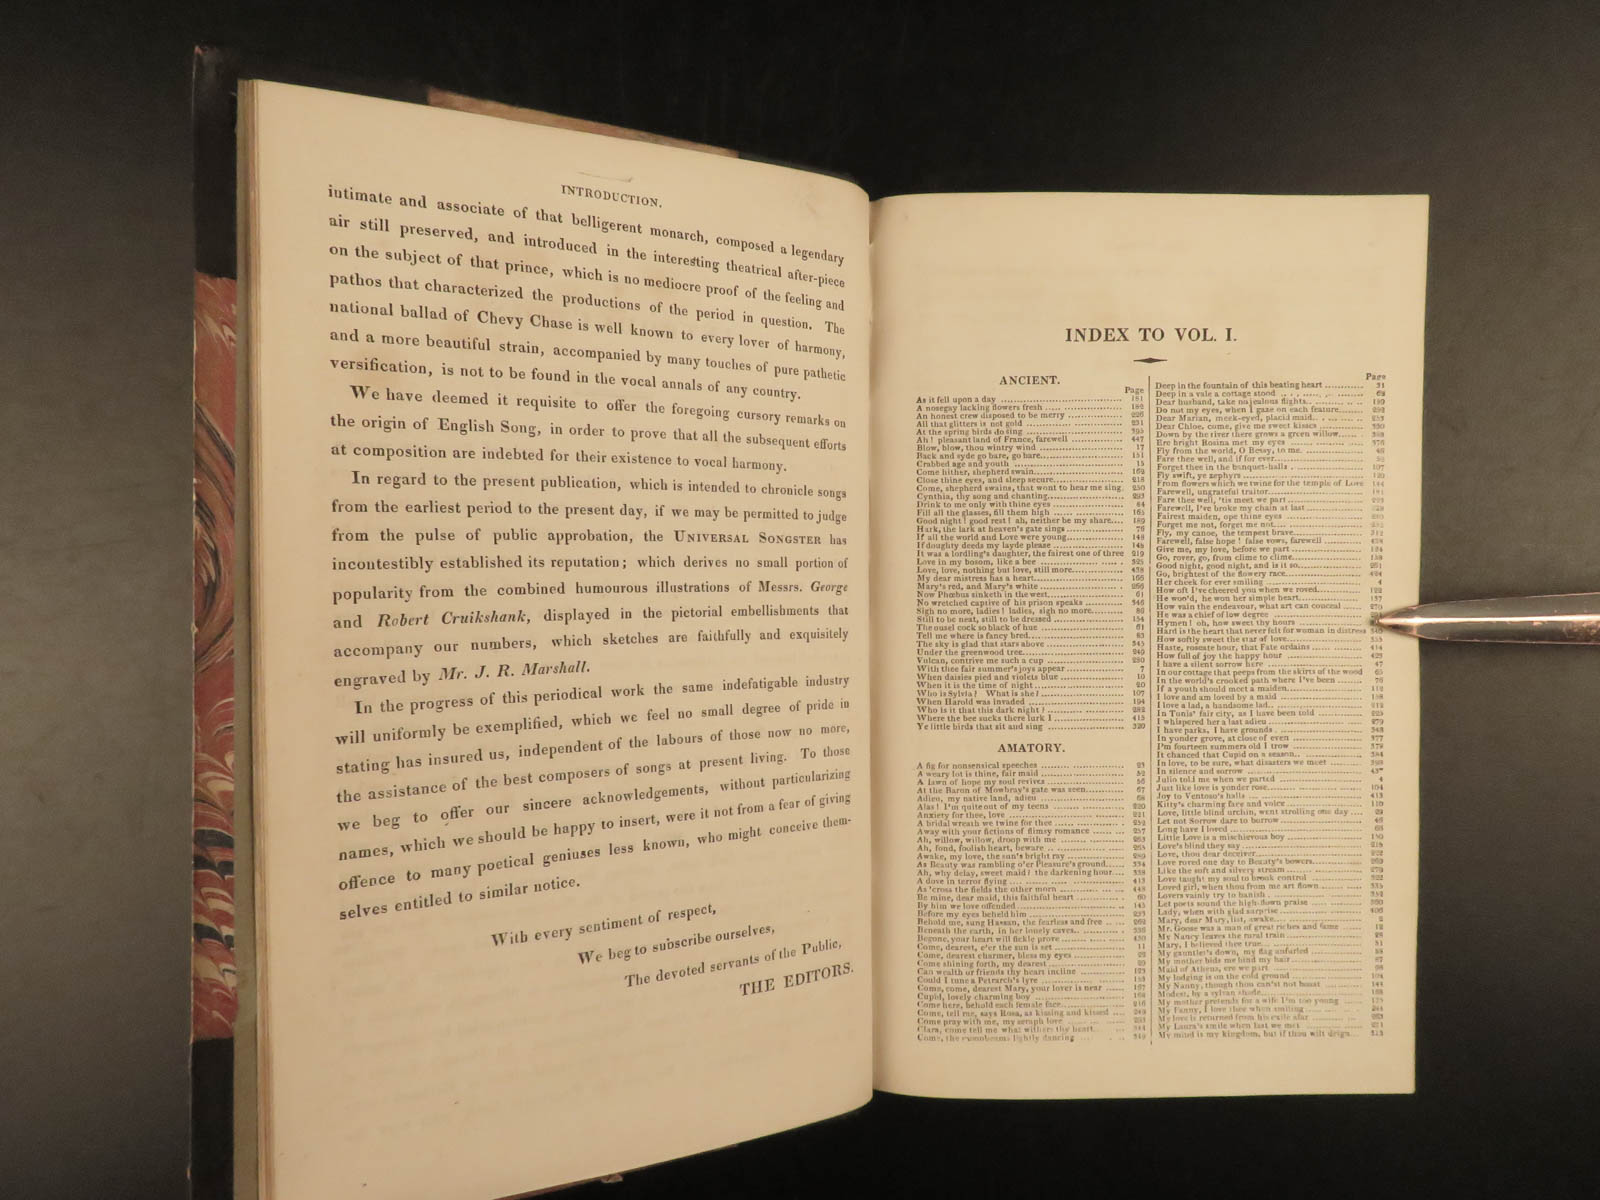 INTRODUCTION.
intimate and associate of that belligerent monarch, composed a legendary
air still preserved, and introduced in the interesting theatrical after-piece
on the subject of that prince, which is no mediocre proof of the feeling and
pathos that characterized the productions of the period in question. The
national ballad of Chevy Chase is well known to every lover of harmony,
and a more beautiful strain, accompanied by many touches of pure pathetic
versification, is not to be found in the vocal annals of any country.
We have deemed it requisite to offer the foregoing cursory remarks on
the origin of English Song, in order to prove that all the subsequent efforts
at composition are indebted for their existence to vocal harmony.
In regard to the present publication, which is intended to chronicle songs
from the earliest period to the present day, if we may be permitted to judge
from the pulse of public approbation, the UNIVERSAL SONGSTER has
incontestibly established its reputation; which derives no small portion of
popularity from the combined humourous illustrations of Messrs. George
and Robert Cruikshank, displayed in the pictorial embellishments that
accompany our numbers, which sketches are faithfully and exquisitely
engraved by Mr. J. R. Marshall.
In the progress of this periodical work the same indefatigable industry
will uniformly be exemplified, which we feel no small degree of pride in
stating has insured us, independent of the labours of those now no more,
the assistance of the best composers of songs at present living. To those
we beg to offer our sincere acknowledgements, without particularizing
names, which we should be happy to insert, were it not from a fear of giving
offence to many poetical geniuses less known, who might conceive them-
selves entitled to similar notice.
With every sentiment of respect,
We beg to subscribe ourselves,
The devoted servants of the Public,
THE EDITORS.
INDEX TO VOL. I.
ANCIENT.
Page
As it fell upon a day 181
A nosegay lacking flowers fresh 182
An honest crew disposed to be merry 226
All that glitters is not gold 231
At the spring birds do sing 395
Ah! pleasant land of France, farewell 447
Blow, blow, thou wintry wind 17
Back and syde go bare, go bare 151
Crabbed age and youth 15
Come hither, shepherd swain 162
Close thine eyes, and sleep secure 218
Come, shepherd swains, that wont to hear me sing 250
Cynthia, thy song and chanting 293
Drink to me only with thine eyes 84
Fill all the glasses, fill them high 165
Good night! good rest! ah, neither be my share 189
Hark, the lark at heaven's gate sings 76
If all the world and Love were young 148
If doughty deeds my layde please 148
It was a lordling's daughter, the fairest one of three 219
Love in my bosom, like a bee 325
Love, love, nothing but love, still more 438
My dear mistress has a heart 166
Mary's red, and Mary's white 266
Now Phœbus sinketh in the west 61
No wretched captive of his prison speaks 346
Sigh no more, ladies! ladies, sigh no more 86
Still to be neat, still to be dressed 154
The ousel cock so black of hue 61
Tell me where is fancy bred 63
The sky is glad that stars above 345
Under the greenwood tree 249
Vulcan, contrive me such a cup 230
With thee fair summer's joys appear 7
When daisies pied and violets blue 10
When it is the time of night 20
Who is Sylvia? What is she? 107
When Harold was invaded 194
Who is it that this dark night? 282
Where the bee sucks there lurk I 415
Ye little birds that sit and sing 320
AMATORY.
A fig for nonsensical speeches 23
A weary lot is thine, fair maid 52
A lawn of hope my soul revives 56
At the Baron of Mowbray's gate was seen 67
Adieu, my native land, adieu 68
Alas! I'm quite out of my teens 220
Anxiety for thee, love 221
A bridal wreath we twine for thee 252
Away with your fictions of flimsy romance 257
Ah, willow, willow, droop with me 263
Ah, fond, foolish heart, beware 265
Awake, my love, the sun's bright ray 280
As Beauty was rambling o'er Pleasure's ground 334
Ah, why delay, sweet maid? the darkening hour 338
A dove in terror flying 413
As 'cross the fields the other morn 448
Be mine, dear maid, this faithful heart 60
By him we love offended 145
Before my eyes beheld him 293
Behold me, sung Hassan, the fearless and free 262
Beneath the earth, in her lonely caves 336
Begone, your heart will fickle prove 430
Come, dearest, e'er the sun is set 11
Come, dearest charmer, bless my eyes 22
Come shining forth, my dearest 29
Can wealth or friends thy heart incline 123
Could I tune a Petrarch's lyre
Come, come, dearest Mary, your lover is near 167
Cupid, lovely charming boy 168
Come here, behold each female face 216
Come, tell me, says Rosa, as kissing and kissed 249
Come pray with me, my seraph love
Clara, come tell me what withers thy heart
Come, the moonbeams lightly dancing
Page
Deep in the fountain of this beating heart 31
Deep in a vale a cottage stood
Dear husband, take no jealous flights
Do not my eyes, when I gaze on each feature
Dear Marian, meek-eyed, placid maid
Dear Chloe, come, give me sweet kisses
Down by the river there grows a green willow
Ere bright Rosina met my eyes 376
Fly from the world, O Bessy, to me
Fare thee well, and if for ever
Forget thee in the banquet-halls 107
Fly swift, ye zephyrs
From flowers which we twine for the temple of Love
Farewell, ungrateful traitor
Fare thee well, 'tis meet we part
Farewell, I've broke my chain at last
Fairest maiden, ope thine eyes
Forget me not, forget me not
Fly, my canoe, the tempest brave
Farewell, false hope! false vows, farewell
Give me, my love, before we part
Go, rover, go, from clime to clime
Good night, good night, and is it so
Go, brightest of the flowery race
Her cheek for ever smiling 4
How oft I've cheered you when we roved 122
He woo'd, he won her simple heart 137
How vain the endeavour, what art can conceal 270
He was a chief of low degree
Hymen! oh, how sweet thy hours
Hard is the heart that never felt for woman in distress
How softly sweet the star of love
Haste, roseate hour, that Fate ordains 414
How full of joy the happy hour 423
I have a silent sorrow here 47
In our cottage that peeps from the skirts of the wood 65
In the world's crooked path where I've been 76
If a youth should meet a maiden 112
I love and am loved by a maid
I love a lad, a handsome lad
In Tunis' fair city, as I have been told 225
I whispered her a last adieu 279
I have parks, I have grounds 348
In yonder grove, at close of even 377
I'm fourteen summers old I trow 379
It chanced that Cupid on a season 384
In love, to be sure, what disasters we meet
In silence and sorrow
Julio told me when we parted 4
Just like love is yonder rose 104
Joy to Ventoso's halls 413
Kitty's charming face and voice 119
Love, little blind urchin, went strolling one day 29
Let not Sorrow dare to borrow 46
Long have I loved 66
Little Love is a mischievous boy 150
Love's blind they say 216
Love, thou dear deceiver
Love roved one day to Beauty's bowers
Like the soft and silvery stream 279
Love taught my soul to brook control 322
Loved girl, when thou from me art flown 335
Lovers vainly try to banish
Let poets sound the high-flown praise
Lady, when with glad surprise 406
Mary, dear Mary, list, awake 2
Mr. Goose was a man of great riches and fame 12
My Nancy leaves the rural train 26
Mary, I believed thee true 31
My gauntlet's down, my flag unfurled
My mother bids me bind my hair 87
Maid of Athens, ere we part 98
My lodging is on the cold ground 104
My Nanny, though thou can'st not boast
Modest, by a sylvan shade
My mother pretends for a wife I'm too young
My Fanny, I love thee when smiling
My love is returned from his exile afar
My Laura's smile when last we met
My mind is my kingdom, but if thou wilt deign